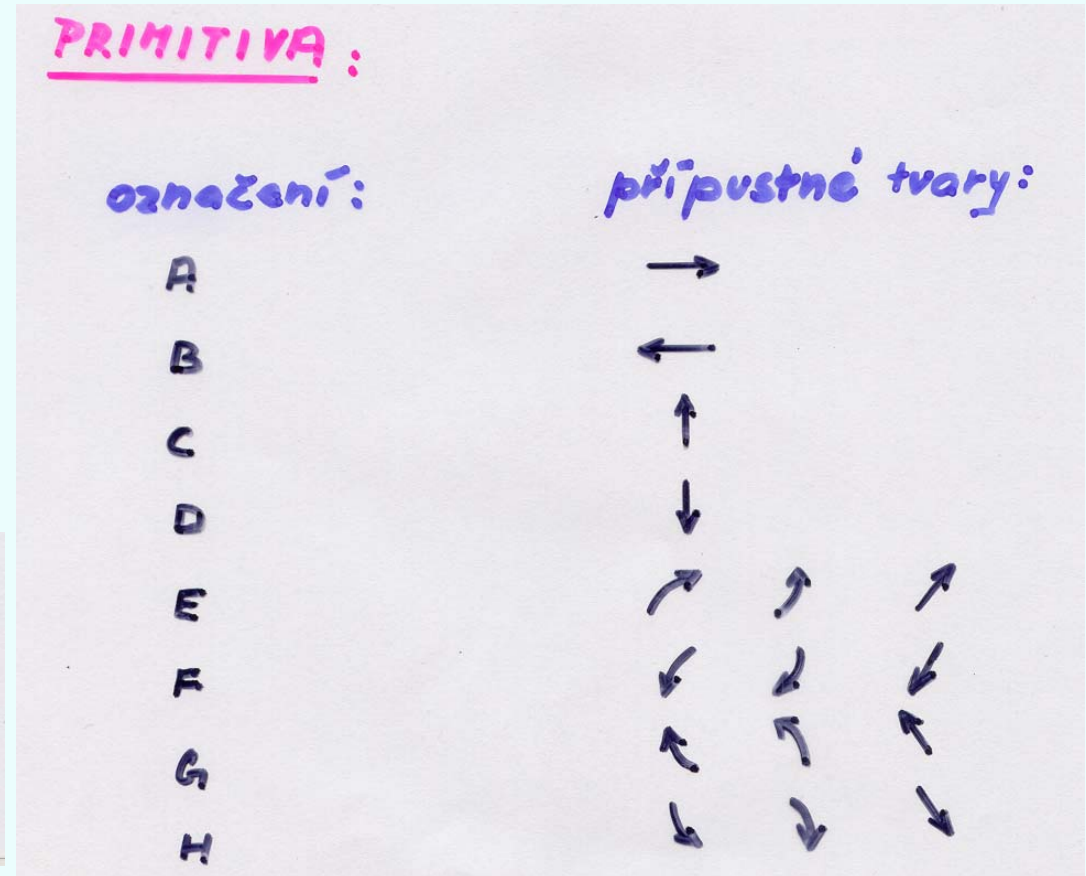 PRIMITIVA:
označení: přípustné tvary:
A
B
C
D
E
F
G
H